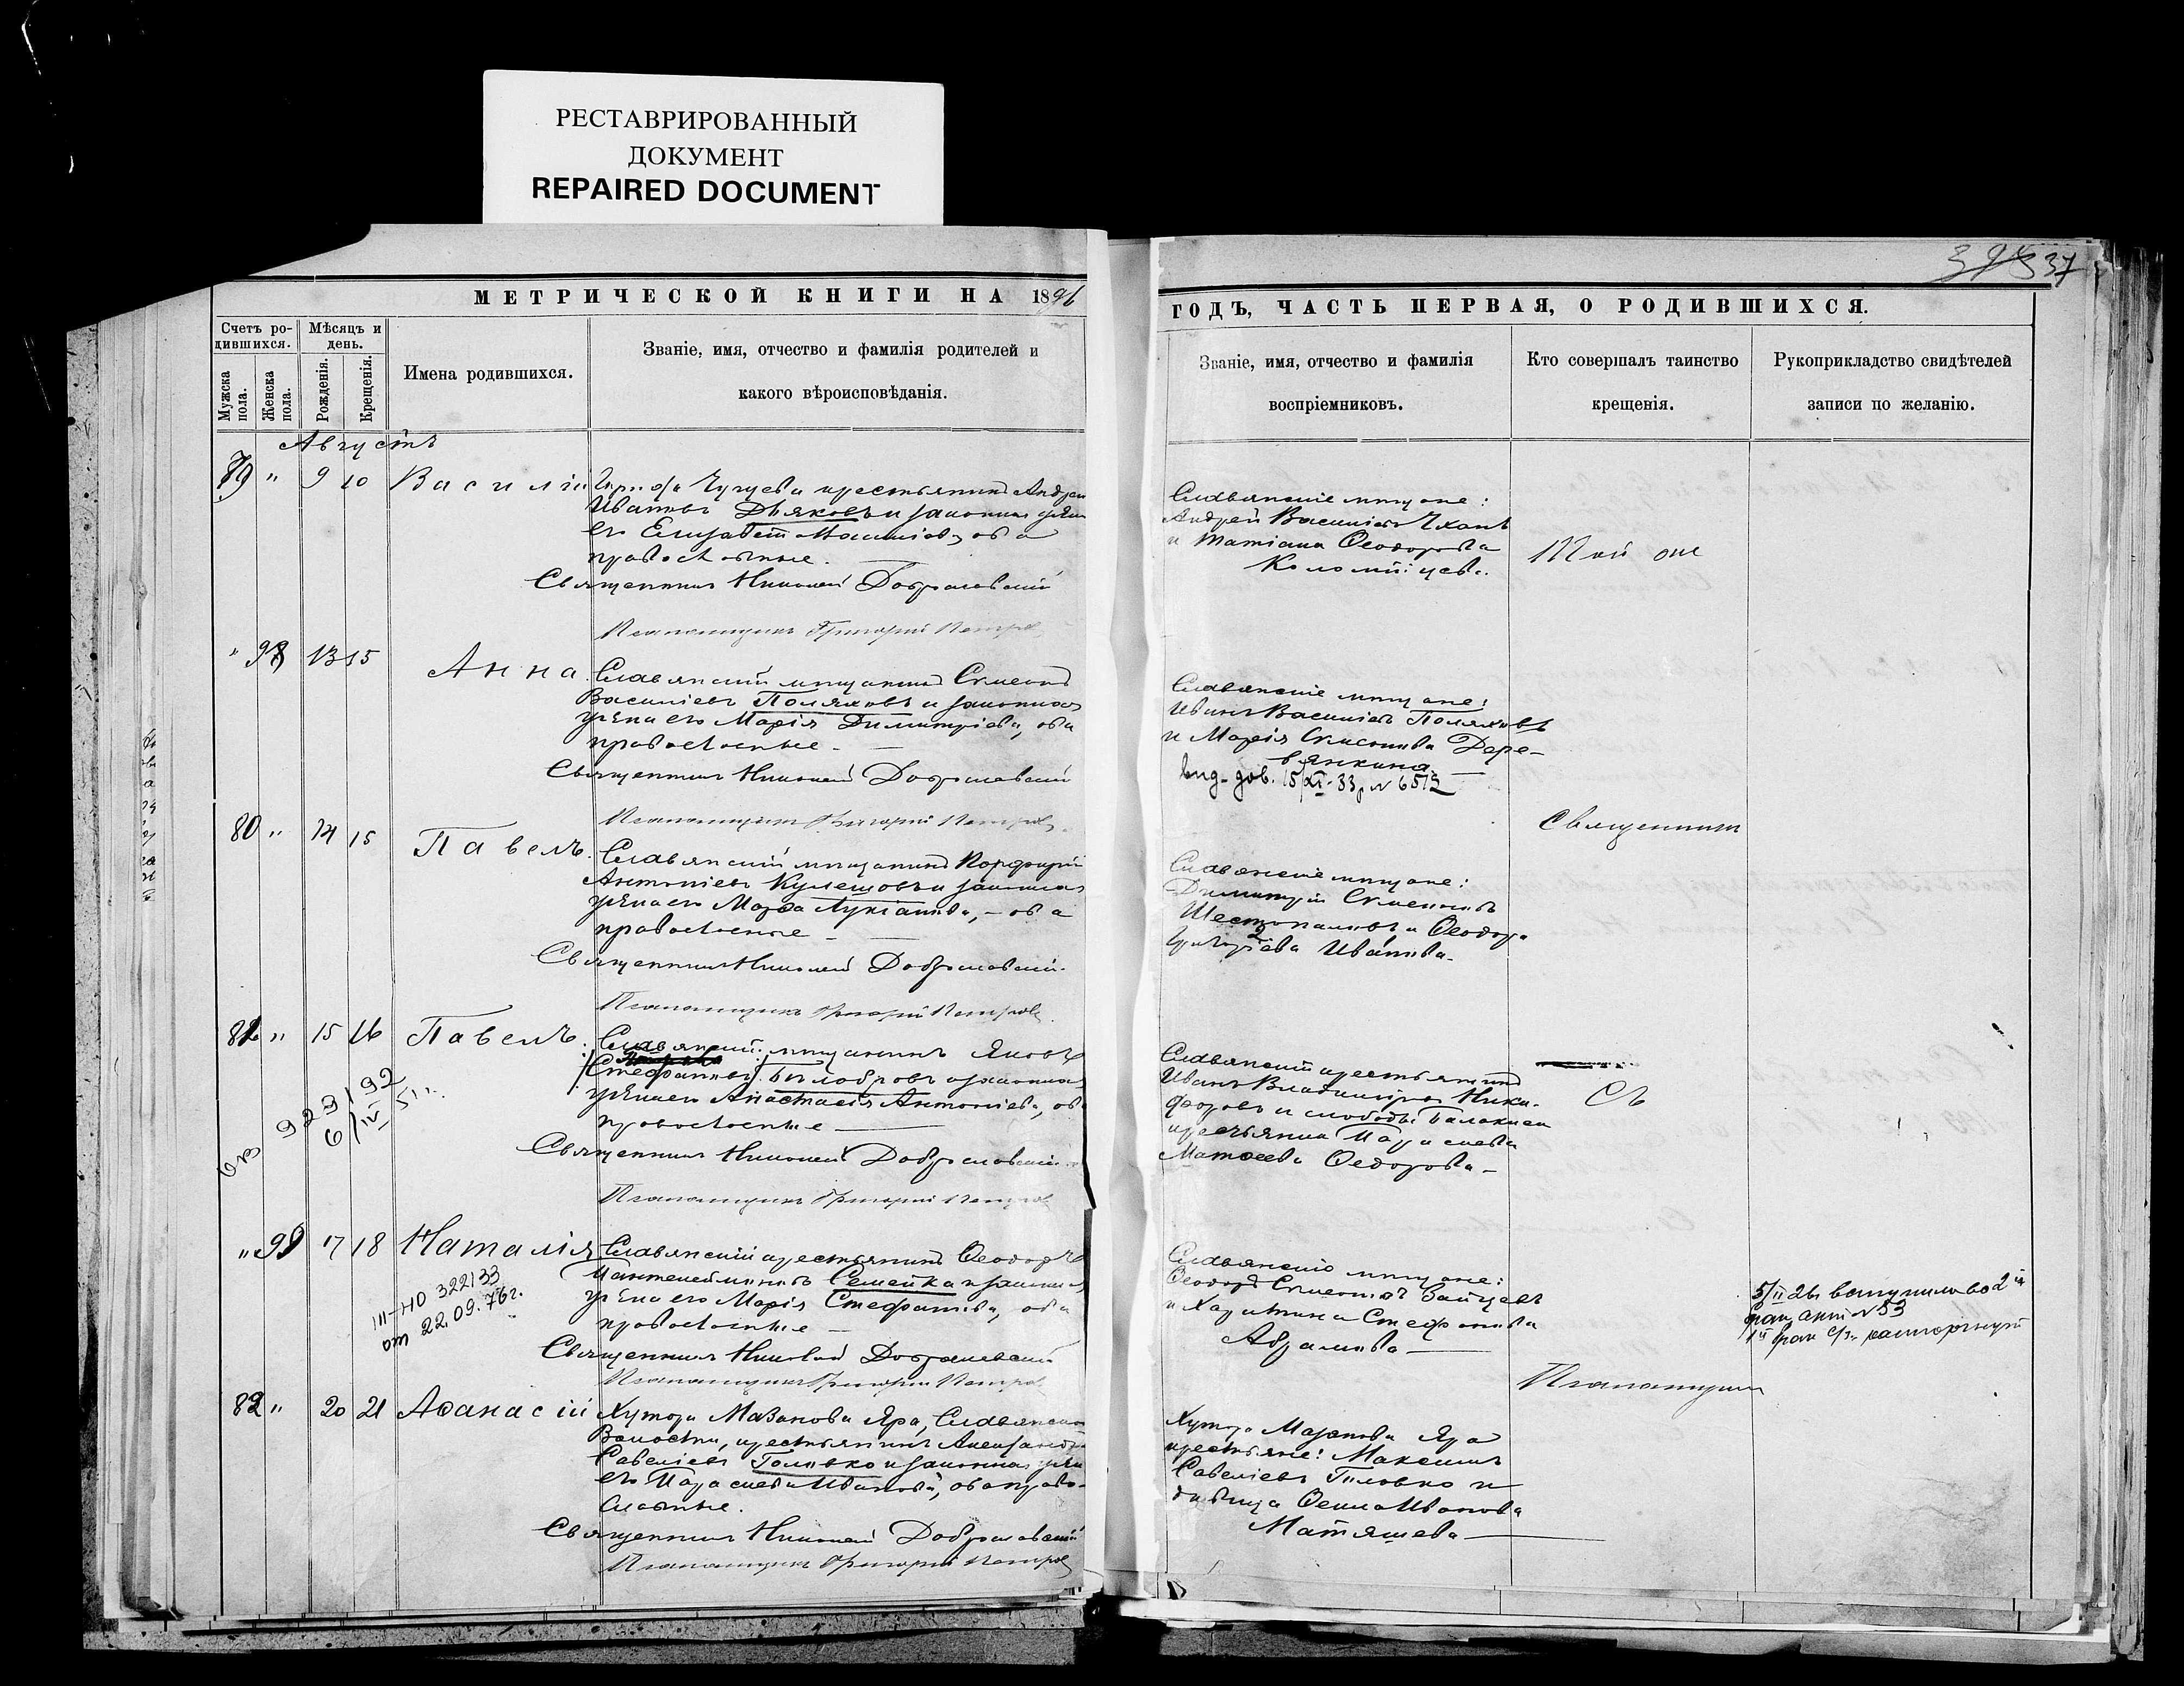 РЕСТАВРИРОВАННЫЙ
ДОКУМЕНТ
REPAIRED DOCUMENT
37
МЕТРИЧЕСКОЙ КНИГИ НА 1896
ГОДЪ, ЧАСТЬ ПЕРВАЯ, О РОДИВШИХСЯ.
Счетъ ро-
дившихся.
Мужска
пола.
Женска
пола.
Мѣсяцъ и
день.
Рожденія.
Крещенія.
Имена родившихся.
Званіе, имя, отчество и фамилія родителей и
какого вѣроисповѣданія.
Званіе, имя, отчество и фамилія
воспріемниковъ.
Кто совершалъ таинство
крещенія.
Рукоприкладство свидѣтелей
записи по желанію.
Августъ
79 " 9 10 Василій
Города Чугуева крестьянинъ Андрей
Ивановъ Дьяковъ и законная жена
его Елизавета оба
православные.
Священникъ Николай
Псаломщикъ Григорій Петровъ
Славянскіе мѣщане:
Андрей Васильевъ
и Татіана Ѳеодорова
Тотъ же
" 98 13 15 Анна
Славянскій мѣщанинъ Симеонъ
Василіевъ Поляковъ и законная
жена его Марія Димитріева, оба
православные.
Священникъ Николай
Псаломщикъ Григорій Петровъ
Славянскіе мѣщане:
Иванъ Василіевъ Поляковъ
и Марія Симеонова Дере-
вянкина.
80 " 14 15 Павелъ
Славянскій мѣщанинъ Порфирій
Антоніевъ Кулешовъ и законная
жена его Марѳа Лукіанова, - оба
православные
Священникъ Николай
Псаломщикъ Григорій Петровъ
Славянскіе мѣщане:
Димитрій Симеоновъ
Шестопаловъ и Ѳеодора
Григоріева Иванова.
Священникъ
" 15 16 Павелъ
Славянскій мѣщанинъ Яковъ
Стефановъ Бѣлобровъ и законная
жена его Анастасія Антоніева, оба
православные
Священникъ Николай
Псаломщикъ Григорій Петровъ
923192
6/IV 51 г.
Славянскій крестьянинъ
Иванъ Владиміровъ Ники-
форовъ и слободы
крестьянка Параскева
Матѳеева Ѳедорова
Съ
" 99 17 18 Наталія
Славянскій крестьянинъ Ѳеодоръ
Пантелеймоновъ Семейка и законная
жена его Марія Стефанова, оба
православные
Священникъ Николай
Псаломщикъ Григорій Петровъ
III-НО 322133
от 22.09.76г.
Славянскіе мѣщане:
Ѳеодоръ Симеоновъ Зайцевъ
и Харитина Стефанова
Абрамова
5/II 26г вступила во 2й
брак, акт № 53
Псаломщикъ
82 " 20 21 Аѳанасій
Хутора Мазанова Яра, Славянской
Волости, крестьянинъ Александръ
Савеліевъ Головко и законная жена
его Параскева Иванова, оба право-
славные.
Священникъ Николай
Псаломщикъ Григорій Петровъ
Хутора Мазанова Яра
крестьяне: Максимъ
Савеліевъ Головко и
дѣвица Иванова
Матяшева